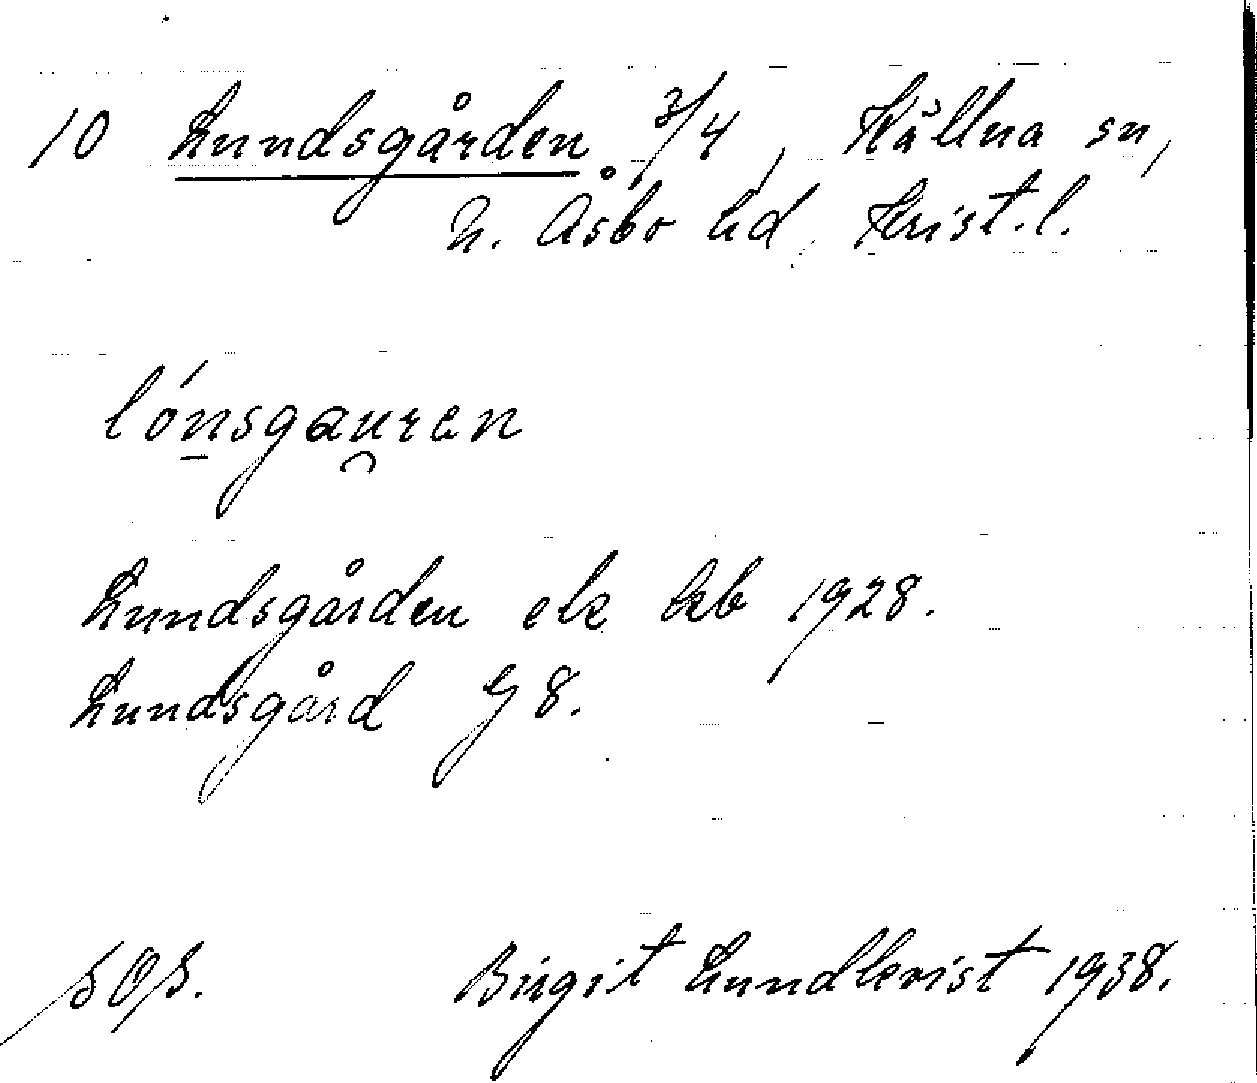 10 Lundsgården 3/4, Källna sn,
N. Åsbo hd, Krist. l.
lónsgau̯ren
Lundsgården ek kb 1928.
Lundsgård G 8.
Birgit Lundkvist 1938.